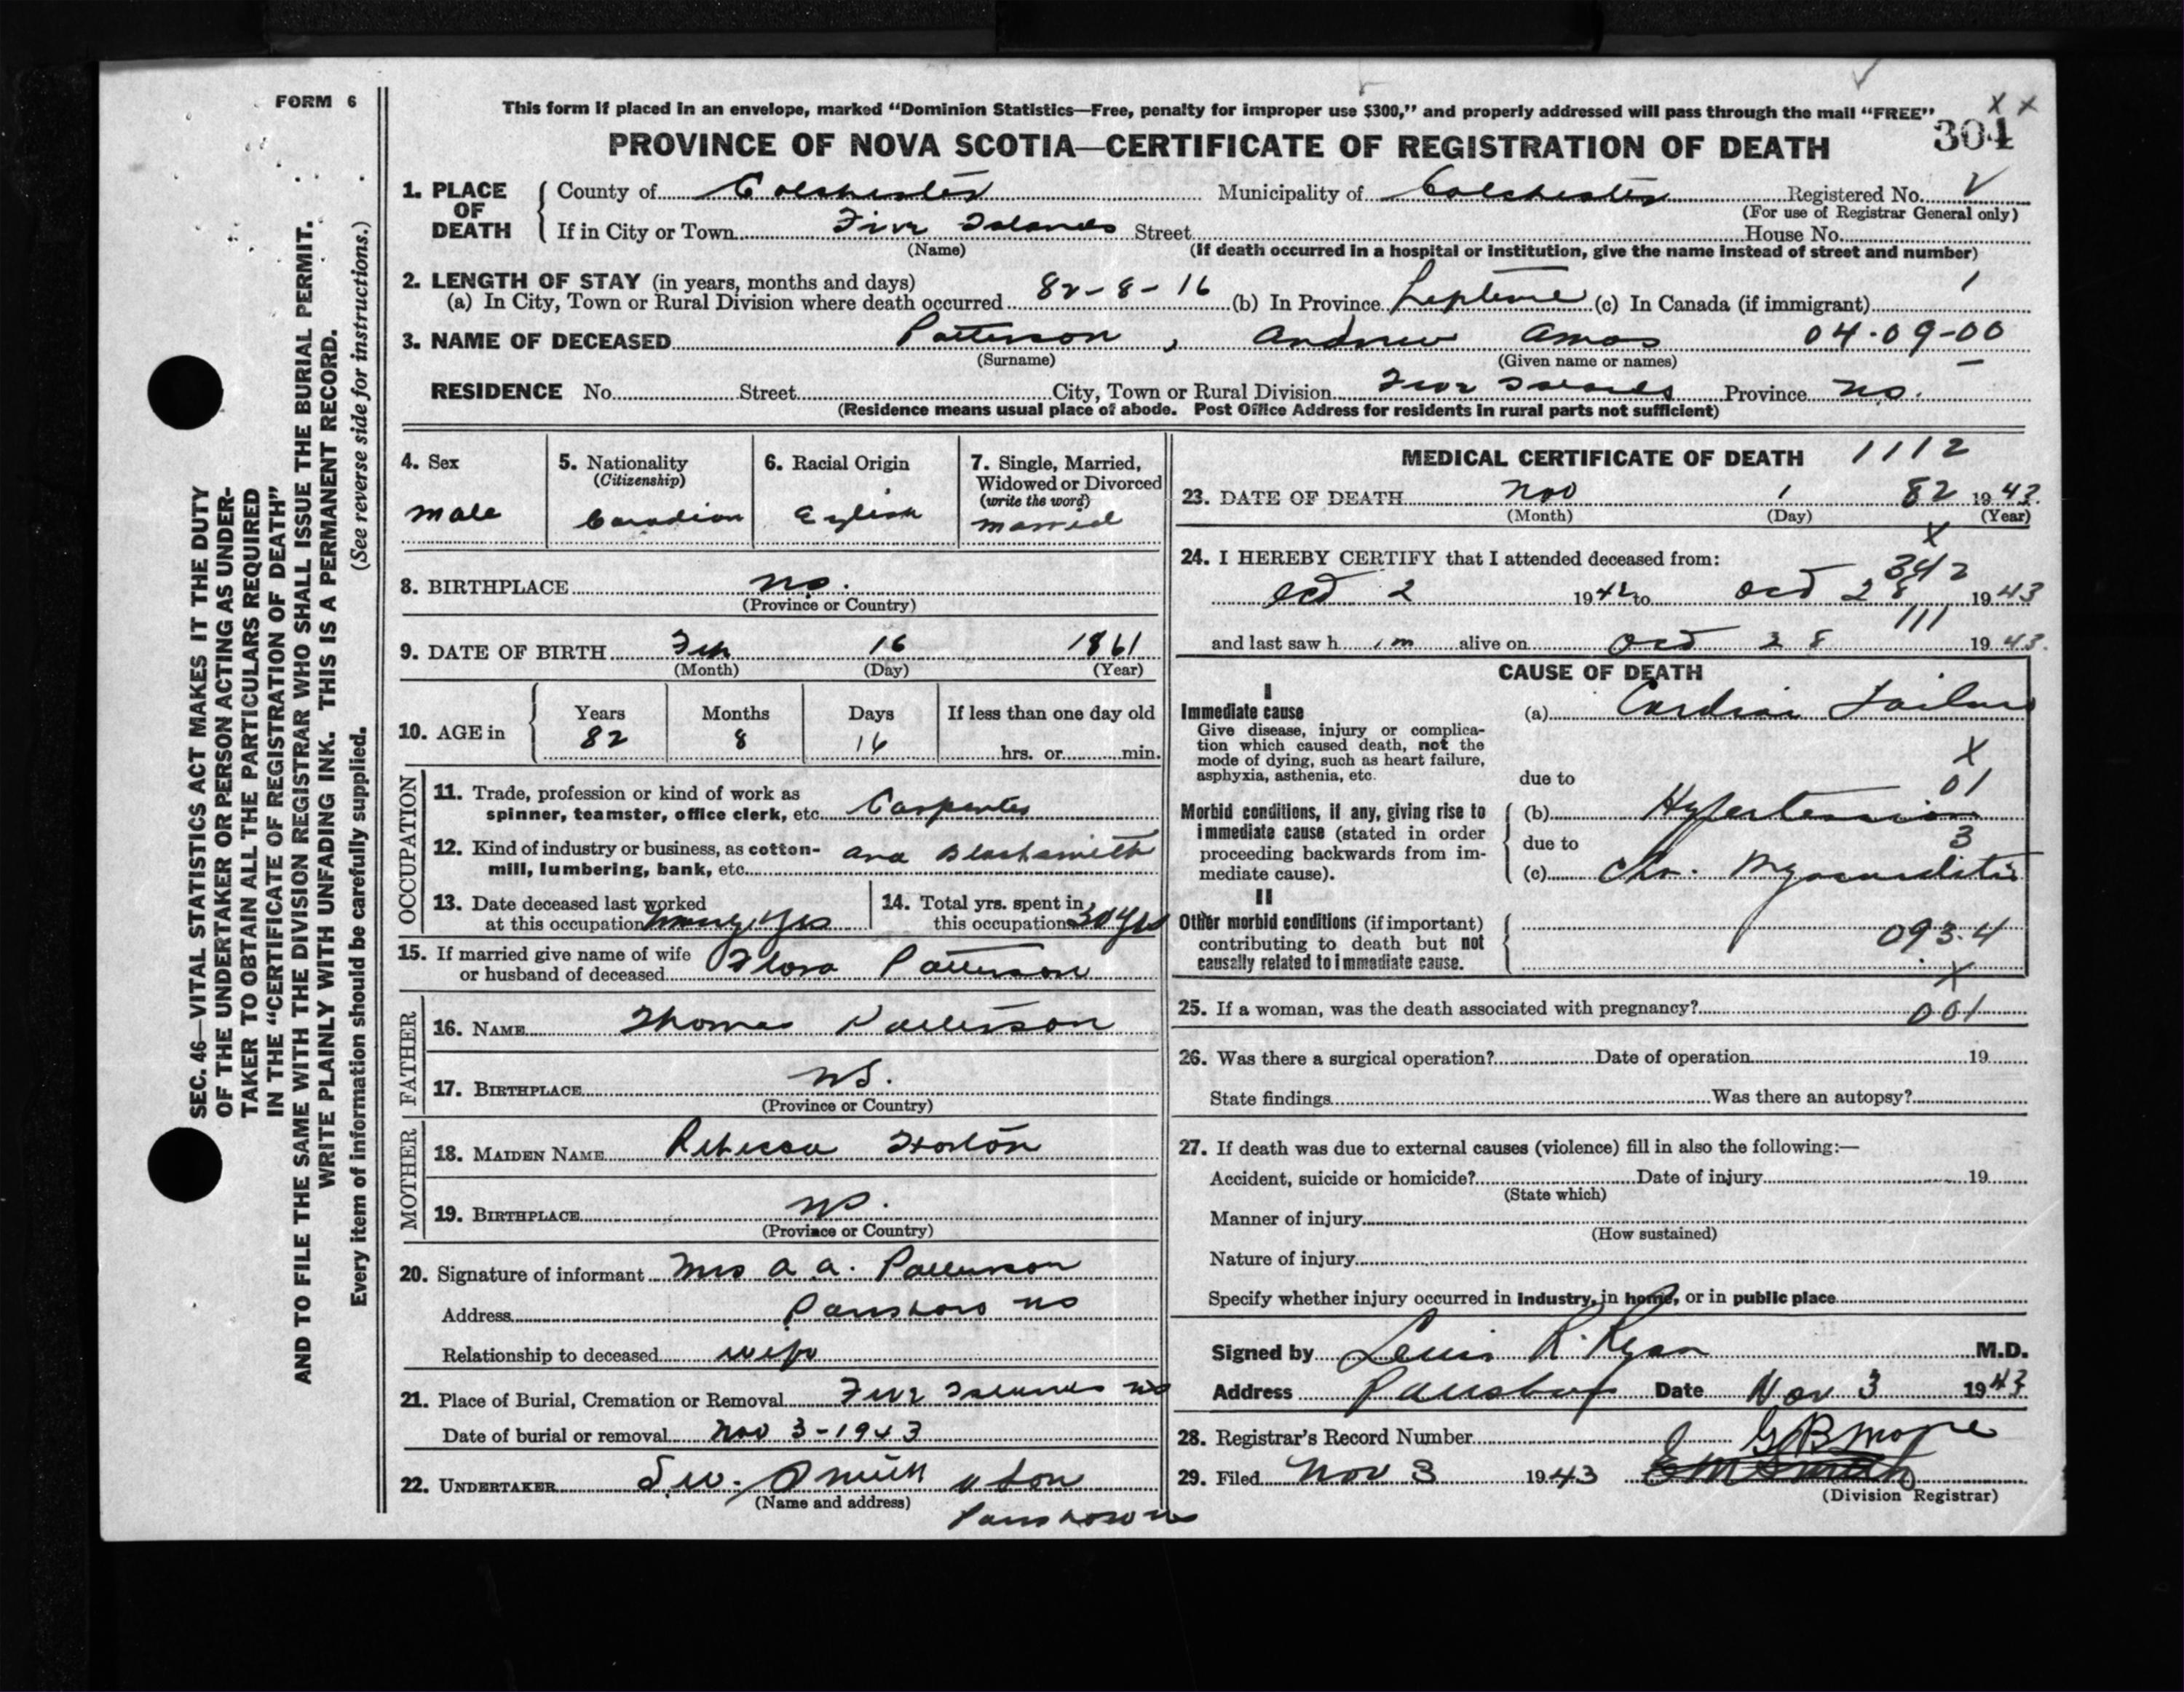 FORM 6
This form if placed in an envelope, marked “Dominion Statistics—Free, penalty for improper use $300,” and properly addressed will pass through the mail “FREE”
x x
304
PROVINCE OF NOVA SCOTIA—CERTIFICATE OF REGISTRATION OF DEATH
1. PLACE OF DEATH
County of Colchester Municipality of Colchester Registered No.
(For use of Registrar General only)
If in City or Town Five Islands Street House No.
(Name) (If death occurred in a hospital or institution, give the name instead of street and number)
2. LENGTH OF STAY (in years, months and days)
(a) In City, Town or Rural Division where death occurred 82-8-16 (b) In Province Lifetime (c) In Canada (if immigrant) 1
3. NAME OF DECEASED Patterson, Andrew Amos 04-09-00
(Surname) (Given name or names)
RESIDENCE No. Street City, Town or Rural Division Five Islands Province N.S.
(Residence means usual place of abode. Post Office Address for residents in rural parts not sufficient)
4. Sex
Male
5. Nationality
(Citizenship)
Canadian
6. Racial Origin
English
7. Single, Married, Widowed or Divorced
(write the word)
Married
8. BIRTHPLACE N.S.
(Province or Country)
9. DATE OF BIRTH Feb 16 1861
(Month) (Day) (Year)
10. AGE in Years Months Days If less than one day old
82 8 16 hrs. or min.
OCCUPATION
11. Trade, profession or kind of work as spinner, teamster, office clerk, etc. Carpenter
12. Kind of industry or business, as cotton-mill, lumbering, bank, etc. and Blacksmith
13. Date deceased last worked at this occupation many yrs
14. Total yrs. spent in this occupation 30 yrs
15. If married give name of wife or husband of deceased Flora Patterson
FATHER
16. NAME Thomas Patterson
17. BIRTHPLACE N.S.
(Province or Country)
MOTHER
18. MAIDEN NAME Rebecca
19. BIRTHPLACE N.S.
(Province or Country)
20. Signature of informant Mrs A. A. Patterson
Address Parrsboro NS
Relationship to deceased wife
21. Place of Burial, Cremation or Removal Five Islands NS
Date of burial or removal Nov 3-1943
22. UNDERTAKER Smith & Son
(Name and address)
Parrsboro NS
MEDICAL CERTIFICATE OF DEATH 1112
23. DATE OF DEATH Nov 1 82 1943.
(Month) (Day) (Year)
x
24. I HEREBY CERTIFY that I attended deceased from:
342
Oct 2 1942 to Oct 28 1943
111
and last saw him alive on Oct 28 1943.
CAUSE OF DEATH
I
Immediate cause
Give disease, injury or complication which caused death, not the mode of dying, such as heart failure, asphyxia, asthenia, etc.
(a) Cardiac Failure
x
due to 01
Morbid conditions, if any, giving rise to immediate cause (stated in order proceeding backwards from immediate cause).
(b) Hypertension
due to 3
(c) Chr. Myocarditis
II
Other morbid conditions (if important) contributing to death but not causally related to immediate cause.
093.4
x
25. If a woman, was the death associated with pregnancy? 001
26. Was there a surgical operation? Date of operation 19
State findings Was there an autopsy?
27. If death was due to external causes (violence) fill in also the following:—
Accident, suicide or homicide? Date of injury 19
(State which)
Manner of injury
(How sustained)
Nature of injury
Specify whether injury occurred in industry, in home, or in public place
Signed by R. Ryan M.D.
Address Parrsboro Date Nov 3 1943
28. Registrar’s Record Number
29. Filed Nov 3 1943
(Division Registrar)
SEC. 46—VITAL STATISTICS ACT MAKES IT THE DUTY
OF THE UNDERTAKER OR PERSON ACTING AS UNDER-
TAKER TO OBTAIN ALL THE PARTICULARS REQUIRED
IN THE “CERTIFICATE OF REGISTRATION OF DEATH”
AND TO FILE THE SAME WITH THE DIVISION REGISTRAR WHO SHALL ISSUE THE BURIAL PERMIT.
WRITE PLAINLY WITH UNFADING INK. THIS IS A PERMANENT RECORD.
Every item of information should be carefully supplied. (See reverse side for instructions.)